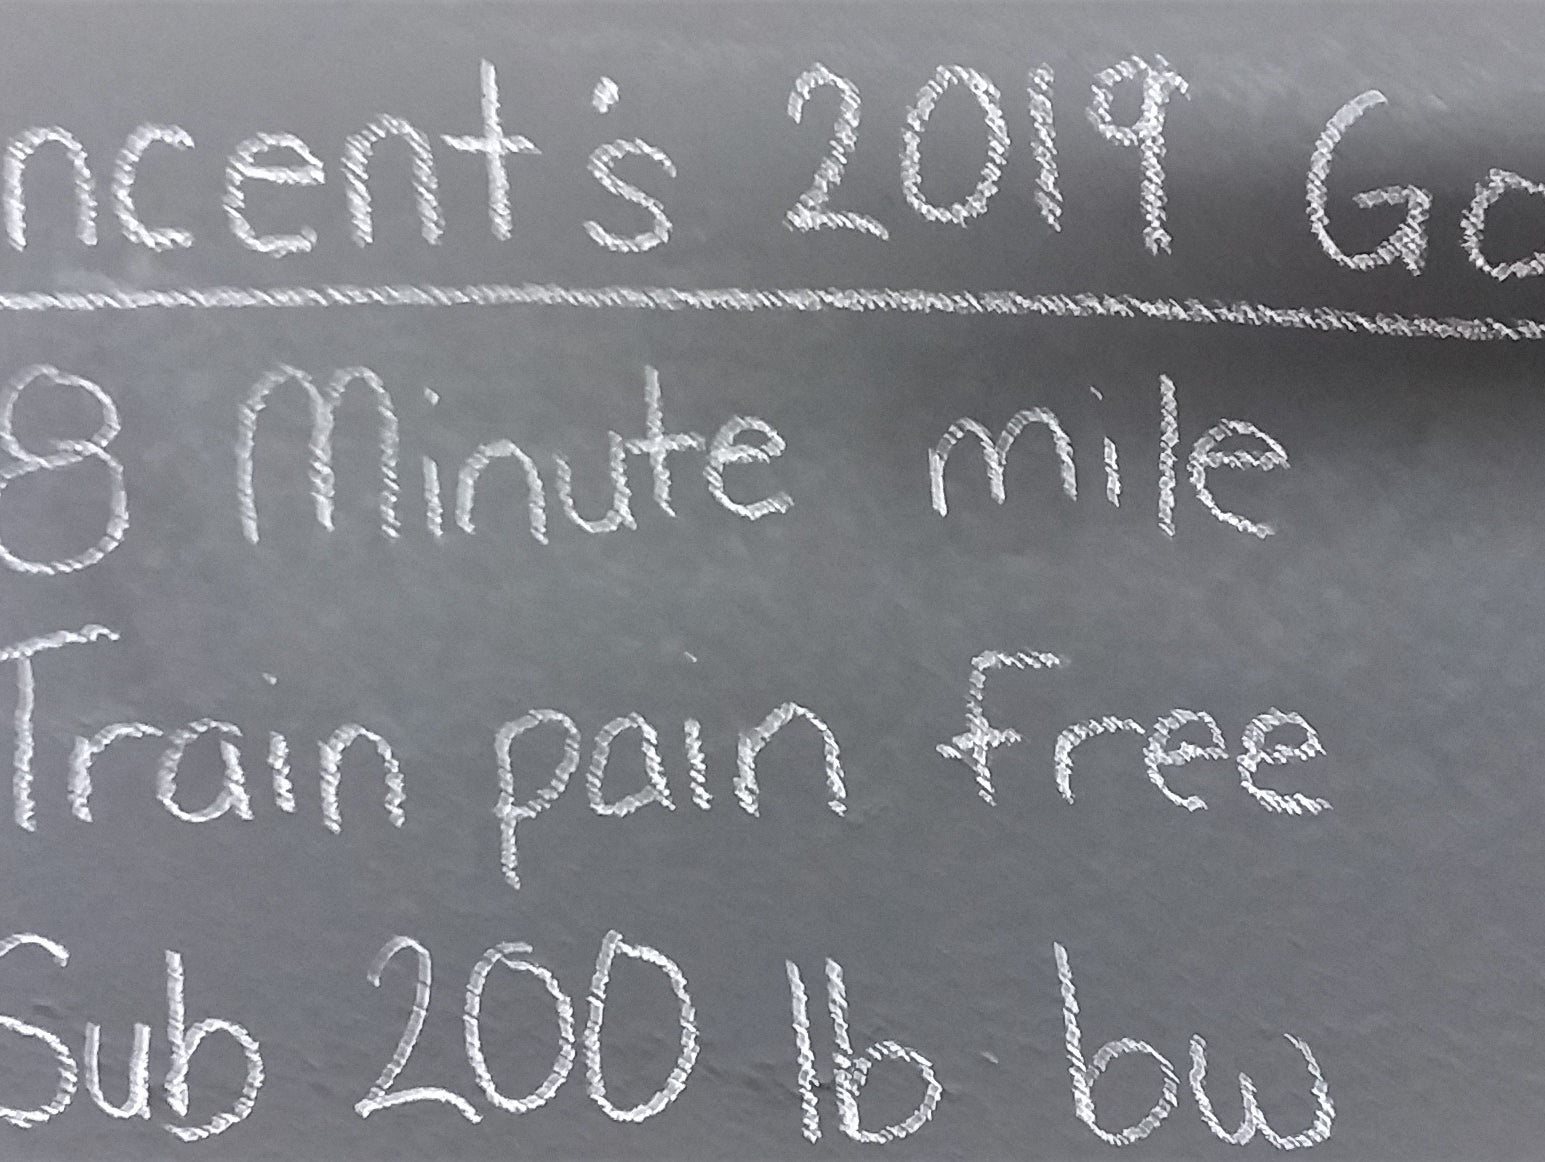 ncent's 2019 Go
8 Minute mile
Train pain free
Sub 200 lb bw